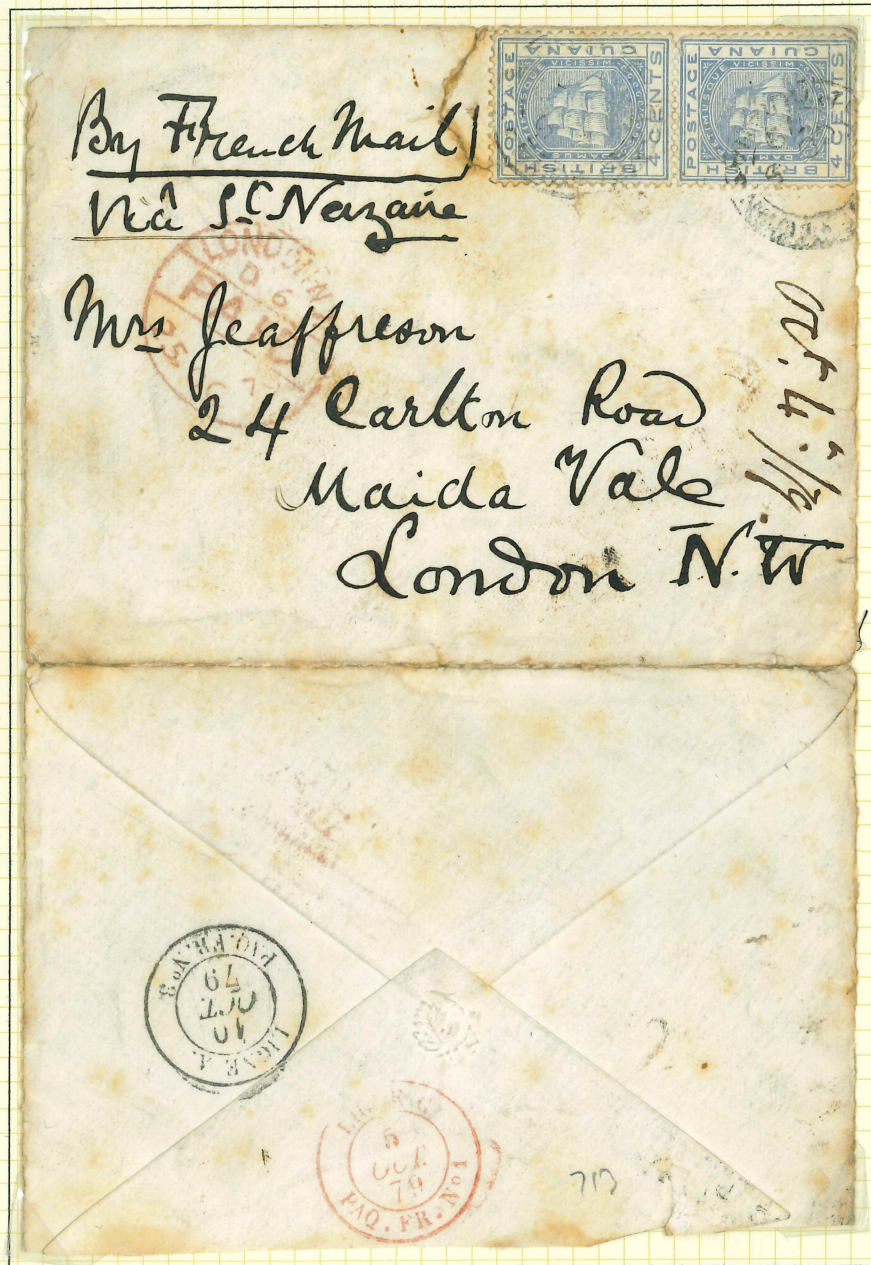 BRITISH
GUIANA
POSTAGE
4 CENTS
DAMUS
VICISSIM
BRITISH
GUIANA
POSTAGE
4 CENTS
DAMUS
VICISSIM
By French Mail
Viâ St. Nazaire
LONDON
PAID
Mrs Jeaffreson
24 Carlton Road
Maida Vale
London N.W
Oct. 4./79.
LIGNE A.
10
OCT
79
PAQ. FR. No 3
5
OCT.
79
PAQ. FR. No 1
713